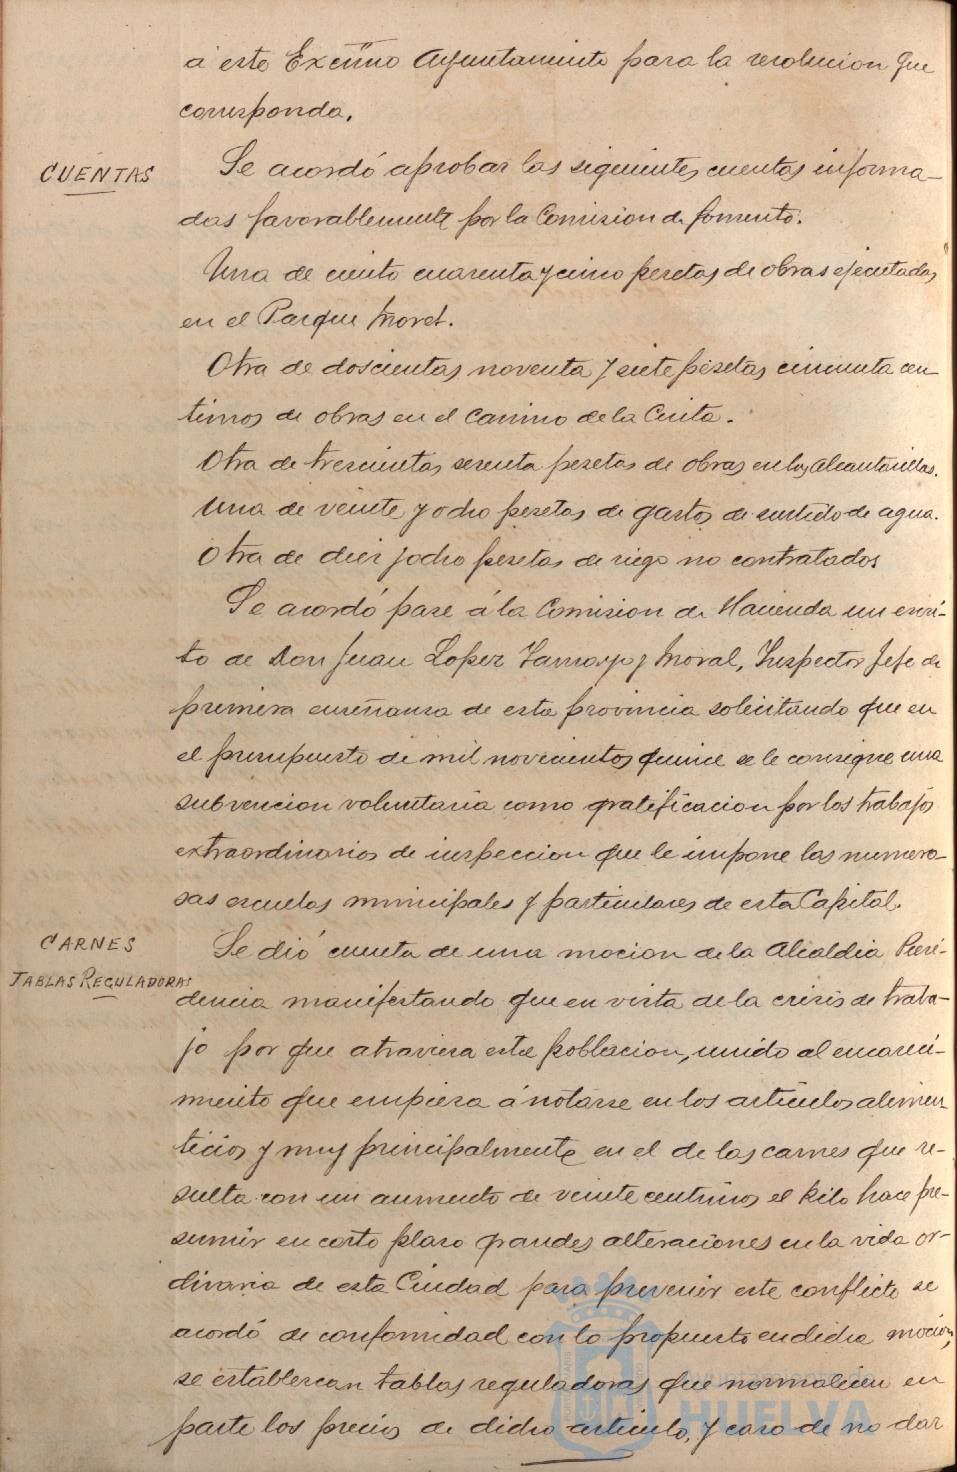 á este Excmo Ayuntamiento para la resolucion que
corresponda.
CUENTAS
Se acordó aprobar las siguientes cuentas informa-
das favorablemente por la Comision de fomento.
Una de ciento cuarenta y cinco pesetas de obras ejecutadas
en el Parque Moret.
Otra de doscientas noventa y siete pesetas cincuenta cen
timos de obras en el Camino de la Cinta.
Otra de trescientas sesenta pesetas de obras en las Alcantarillas.
Una de veinte y ocho pesetas de gastos de surtido de agua.
Otra de diez y ocho pesetas de riego no contratados
Se acordó pase á la Comision de Hacienda un escri-
to de Don Juan Lopez Tamayo y Moral, Inspector Jefe de
primera enseñanza de esta provincia solicitando que en
el presupuesto de mil novecientos quince se le consigne una
subvencion voluntaria como gratificacion por los trabajos
extraordinarios de inspeccion que le impone las numero-
sas escuelas municipales y particulares de esta Capital.
CARNES
TABLAS REGULADORAS
Se dió cuenta de una mocion de la Alcaldia Presi-
dencia manifestando que en vista de la crisis de traba-
jo por que atraviesa esta poblacion, unido al encareci-
miento que empieza á notarse en los articulos alimen
ticios y muy principalmente en el de las carnes que re-
sulta con un aumento de veinte centimos el kilo hace pre-
sumir en corto plazo grandes alteraciones en la vida or-
dinaria de esta Ciudad para prevenir este conflicto se
acordó de conformidad con lo propuesto en dicha mocion,
se establezcan tablas reguladoras que normalicen en
parte los precios de dicho articulo, y caso de no dar
Ayuntamiento de
HUELVA